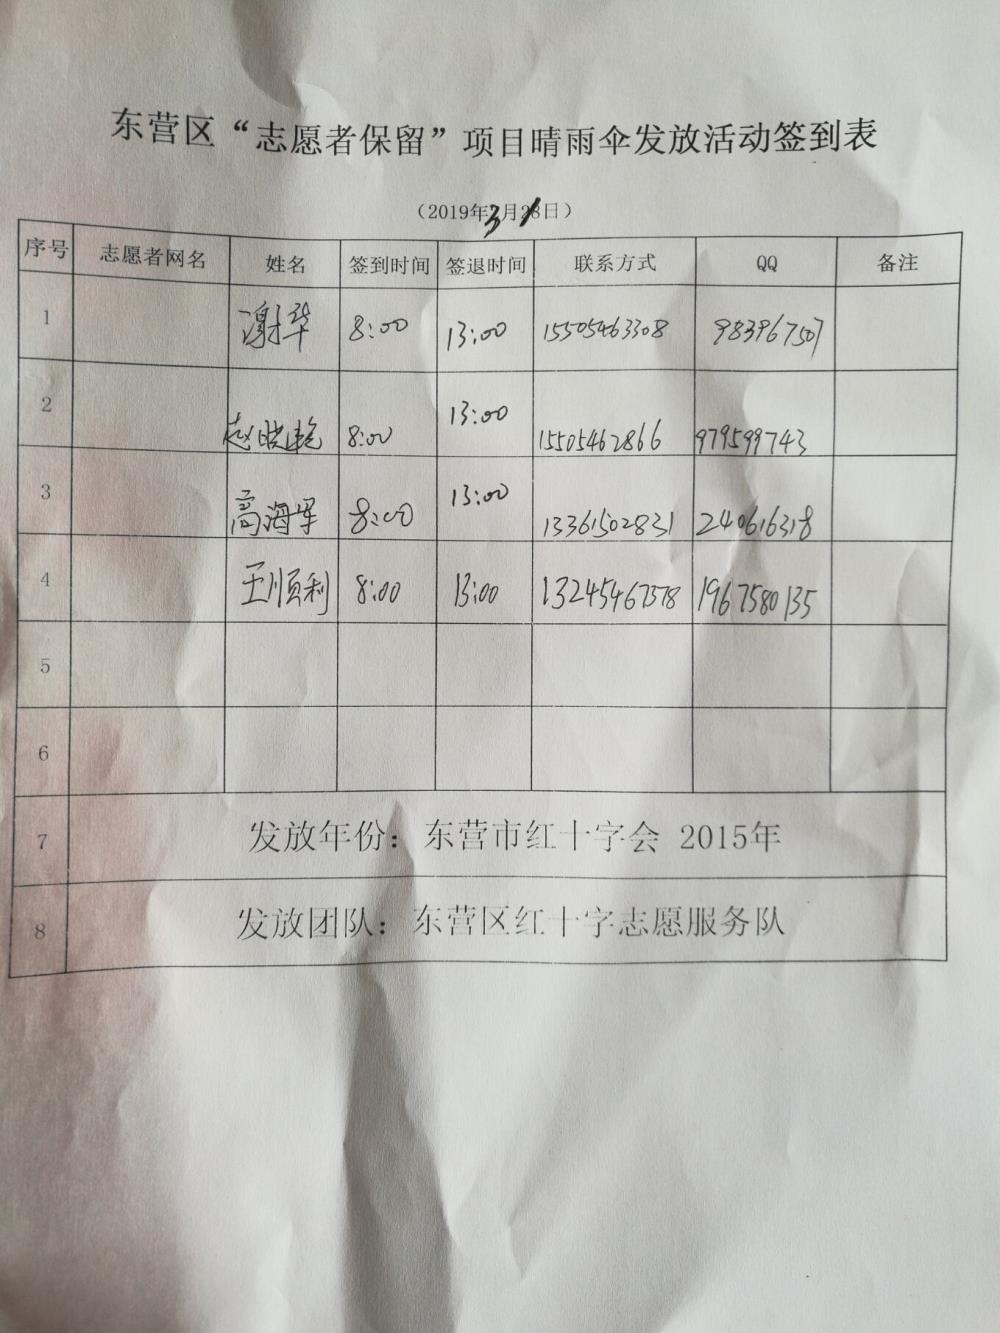 东营区“志愿者保留”项目晴雨伞发放活动签到表
（2019年3月1日）
序号 志愿者网名 姓名 签到时间 签退时间 联系方式 QQ 备注
1 谢华 8:00 13:00 15505463308 983967507
2 赵晓艳 8:00 13:00 15505462866 979599743
3 高海军 8:00 13:00 13361502831 240616318
4 王顺利 8:00 13:00 13245467378 1967580135
5
6
7 发放年份：东营市红十字会 2015年
8 发放团队：东营区红十字志愿服务队